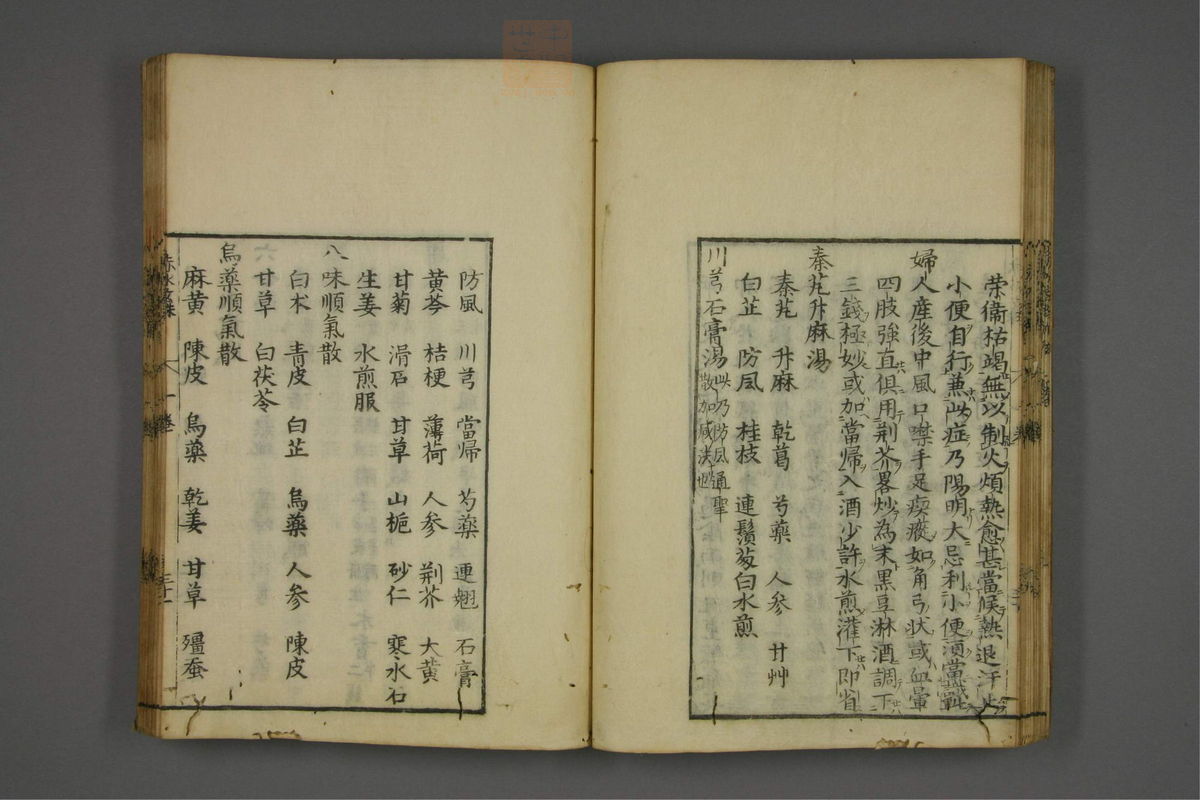 荣衛枯竭無以制火煩熱愈甚當候熱退汗止
小便自行兼此症乃陽明大忌利小便須當戬
婦人産後中風口噤手足瘈瘲如角弓状或血暈
四肢強直俱用荆芥畧炒為末黒豆淋酒調下
三錢極妙或加當歸入酒少許水煎灌下即省
秦艽升麻湯
秦艽 升麻 乾葛 芍藥 人参 甘艸
白芷 防風 桂枝 連鬚葱白水煎
川芎石膏湯此乃防風通聖
散加减法也
防風 川芎 當歸 芍藥 連翹 石膏
黄芩 桔梗 薄荷 人参 荆芥 大黄
甘菊 滑石 甘草 山梔 砂仁 寒水石
生姜 水煎服
八味順氣散
白术 青皮 白芷 烏藥 人参 陳皮
甘草 白茯苓
烏藥順氣散
麻黄 陳皮 烏藥 乾姜 甘草 殭蚕
赤水玄珠 一卷 三十一